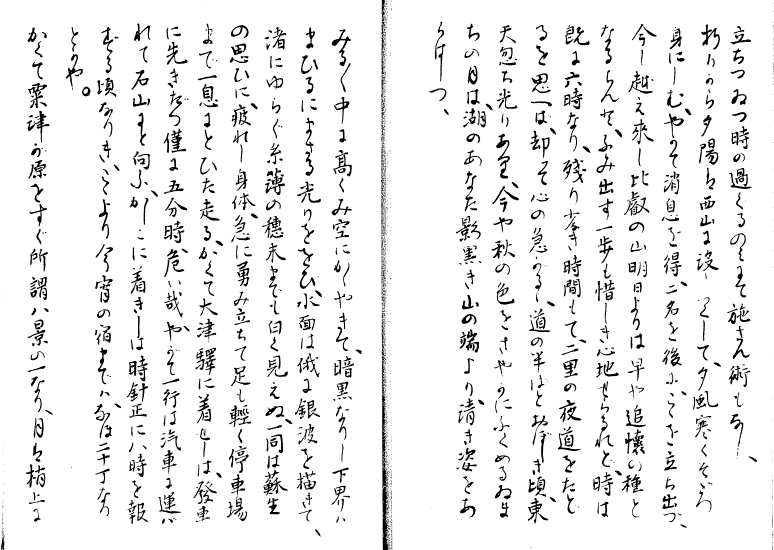 立ちつゐつ時の過ぐるのみにて施さん術もなし、
折りから夕陽は西山に没しして、夕風寒くそゞろ
身にしむ、やがて消息を得、二名を後にこゝを立ち出づ、
今し越え来し比叡の山明日よりは早や追懐の種と
なるらん、ふみ出す一歩も惜しき心地せらるれど、時は
既に六時なり、残り少き時間もて、二里の夜道をたど
るを思へば、却そ心の急がるゝ、道の半ばとおぼしき頃、東
天忽ち光りあり、今や秋の色をさやかにふくめるゐま
ちの月は、湖のあなた影黒き山の端より、清き姿をあ
らはしつ、
みるく中に高くみ空にかゞやきて、暗黒なりし下界は
まひるにまさる光りををひ、水面は俄に銀波を描きて、
渚にゆらぐ糸薄の穂末までも白く見えぬ、一同は蘇生
の思ひに、疲れし身体、急に勇み立ちて足も軽く停車場
まで一息にとひた走る、かくて大津驛に着せしは、發車
に先きだつ僅に五分時、危い哉、やがて一行は汽車に運ば
れて石山にと向ふ、かしこに着きしは時針正に八時を報
ずる頃なりき、こゝより今宵の宿までは、なほ二十丁なり
とかや。
かくて粟津が原をすぐ所謂八景の一なり、月は梢上に